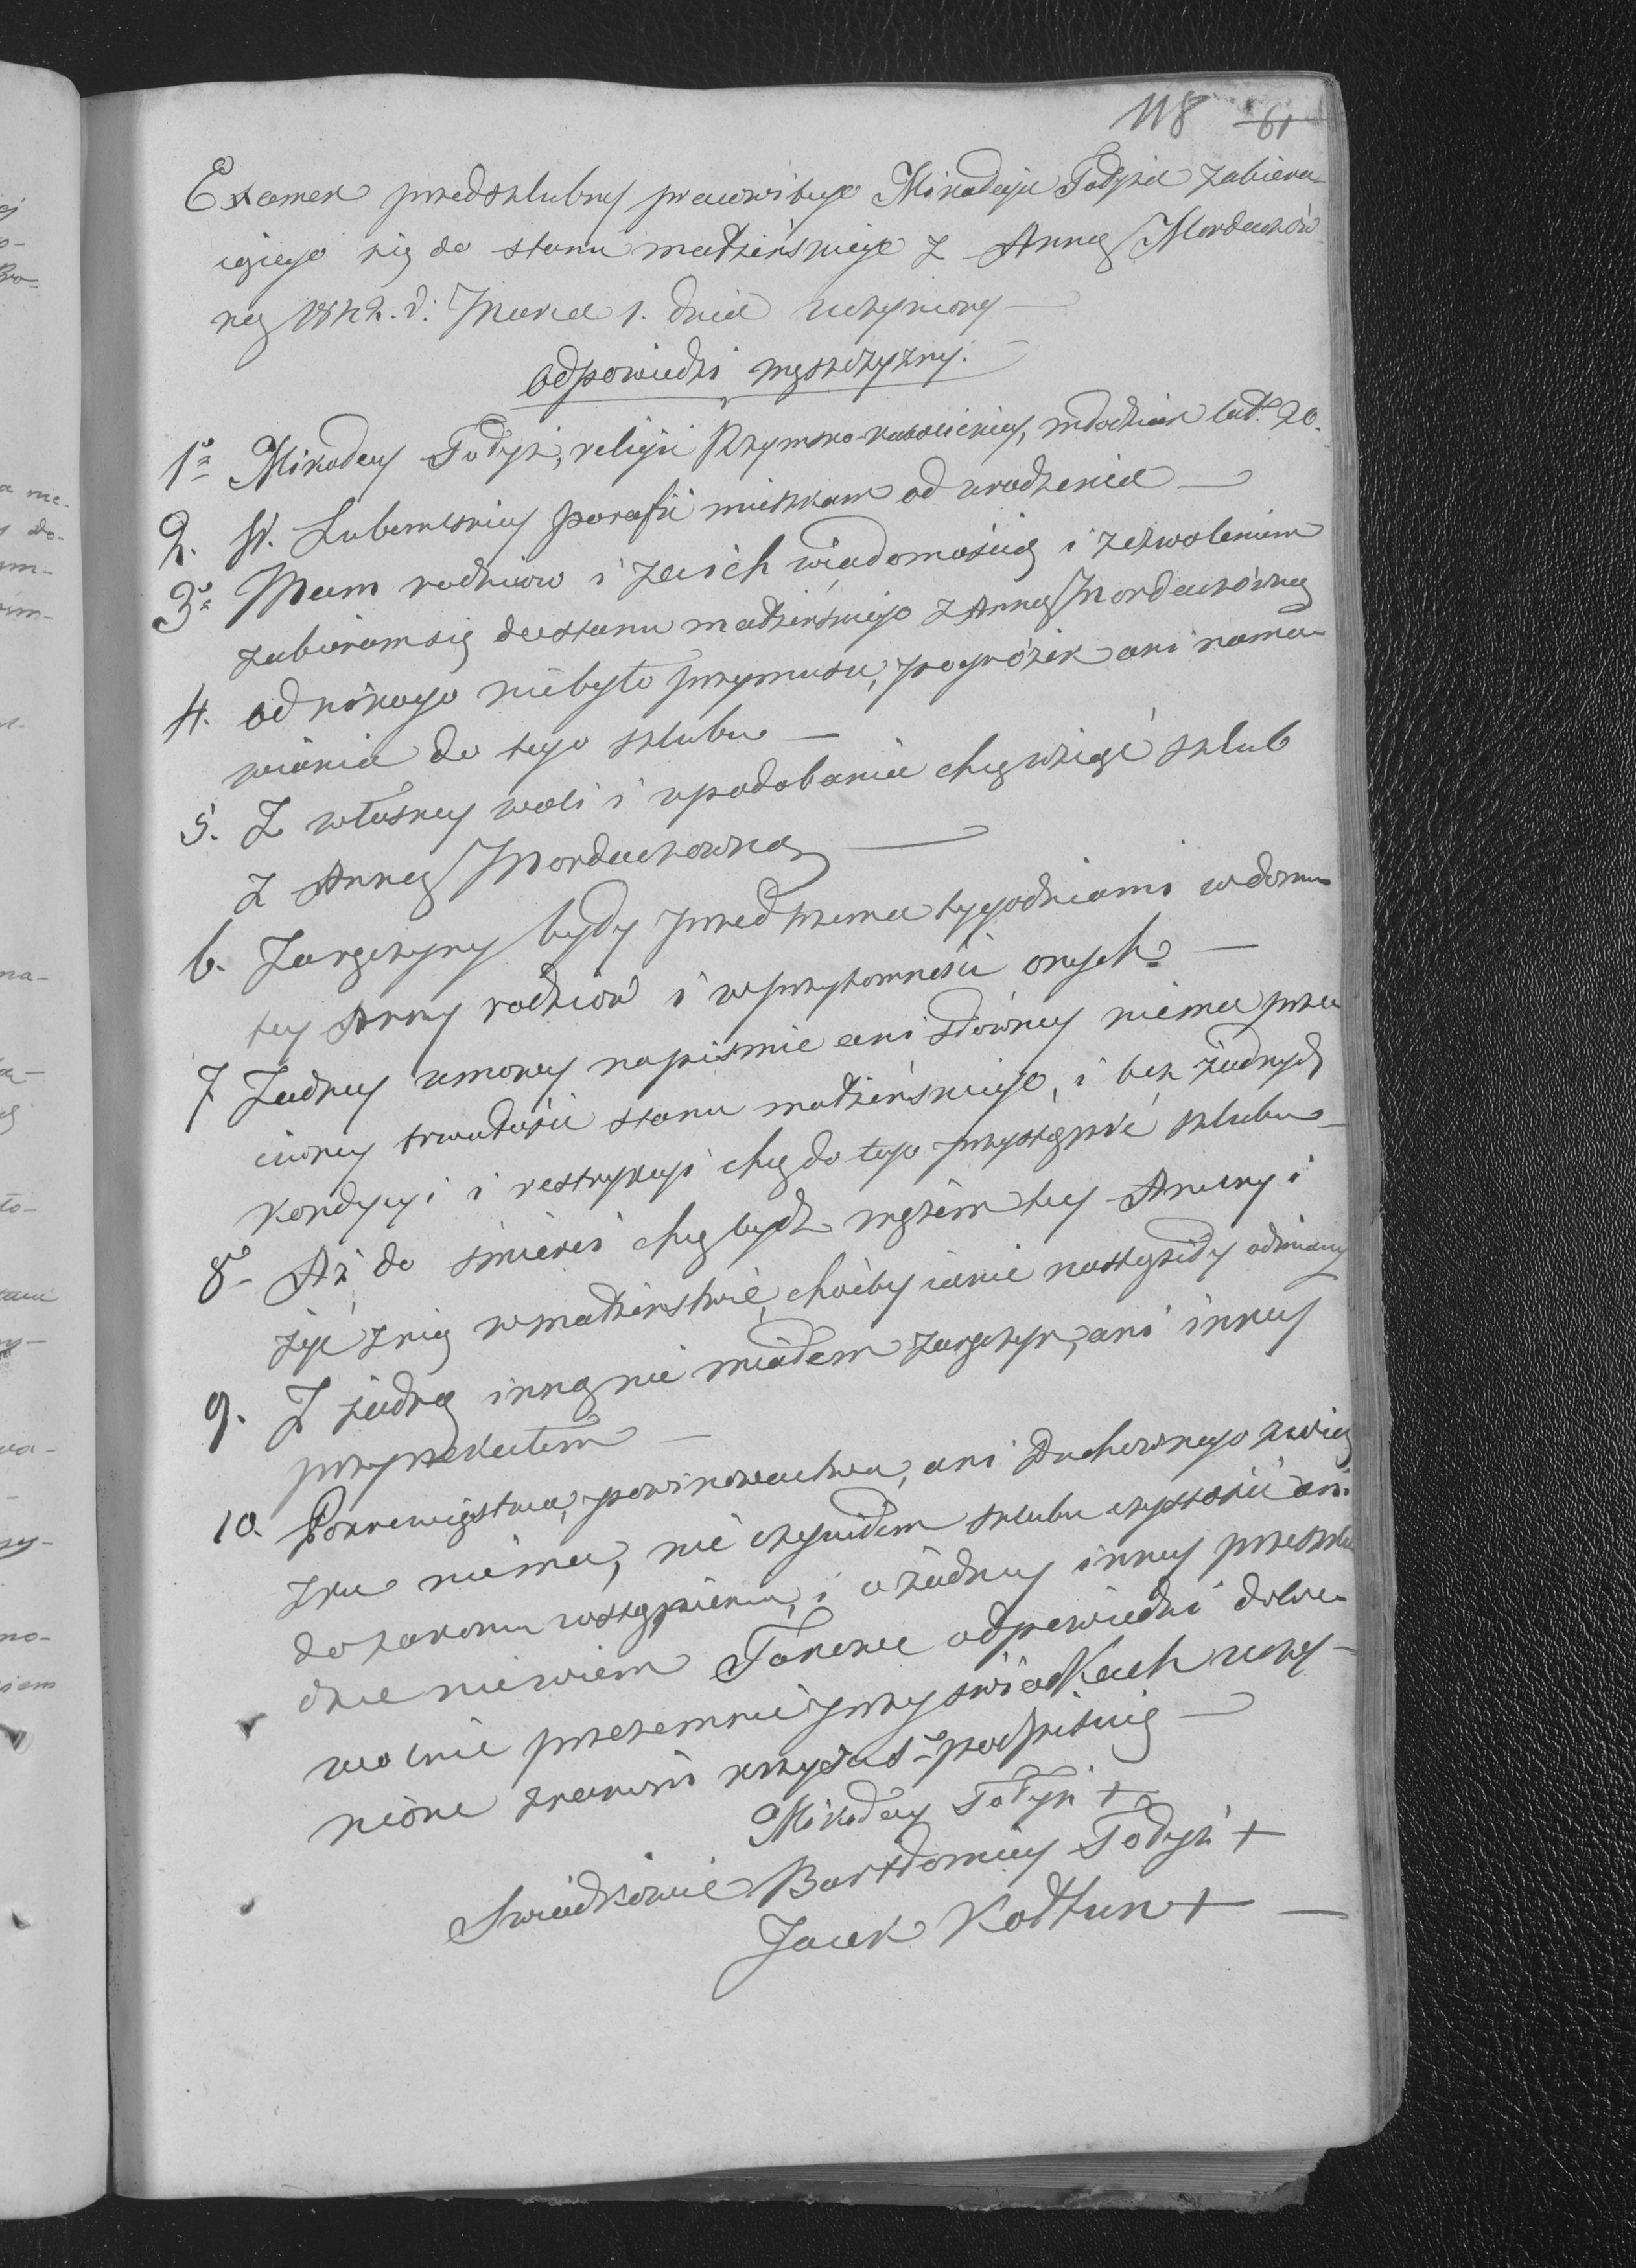 118 61
Examen przedszlubny pracowitego Mikołaja Tołysza zabiera-
iącego się do stanu małżeńskiego z Anną Mordachów
ną 1842. r. Marca 1. dnia uczyniony —
odpowiedzi męszczyzny.
1º Mikołay Tołysz, religii Rzymsko-katolickiey, młodzian lat 20.
2. W. Lubomlskiey parafii mieszkam od urodzenia —
3º Mam rodziców i za ich wiadomością i zezwoleniem
zabieram się do stanu małżeńskiego z Anną Mordachówną
4. od nikogo niebyło przymusu, pogróżek ani nama-
wiania do tego szlubu —
5. Z własney woli i upodobania chcę wziąść szlub
z Anną Mordachowną —
6. Zaręczyny były przed trzema tygodniami w domu
tey Anny rodziców i w przytomności onych. —
7 Żadney umowy napiśmie ani słówney niema prze-
ciwney trwałości stanu małżeńskiego, i bez żadnych
kondycyi i restrykcyi chcę do tego przystąpić szlubu —
8º Aż do śmierci chcę bydź mężem tey Anny i
żyć znią w małżeństwie, choćby iakie nastąpiły odmiany
9. Z żadną inną nie miałem zaręczyn, ani inney
przyrzekałem —
10. Pokrewięstwa, powinowactwa, ani Duchownego związ
zku niema, nie czyniłem szlubu czystości ani
do zakonu wstąpienia, i o żadney inney przeszko-
dzie niewiem Takowe odpowiedzi dobro-
wolnie przezemnie przy świadkach uczy-
nione znakiem krzyża Sº podpisuię —
Mikołay Tołysz +
Swiadkowie Bartłomiey Tołysz +
Jacek Kołtun + —